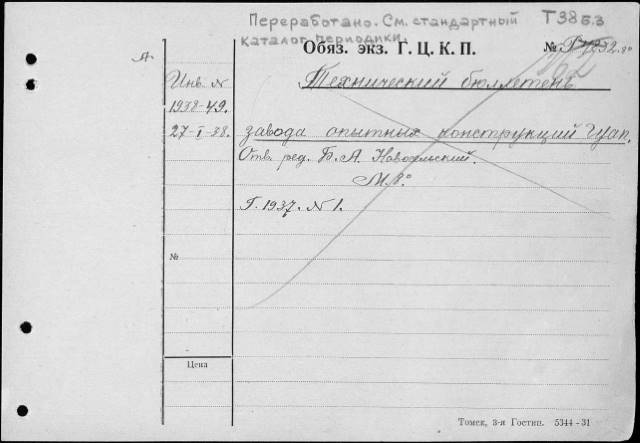 Переработано. См. стандартный Т38 Б.3
каталог периодики.
Обяз. экз. Г. Ц. К. П. №
А.
Инв. N
1938-49.
27-I-38.
Технический бюллетень
завода опытных конструкций Гуап.
Отв. ред. Б. А.
М. 8°
Г. 1937. N 1.
№
Цена
Томск, 3-я Гостип. 5344-31